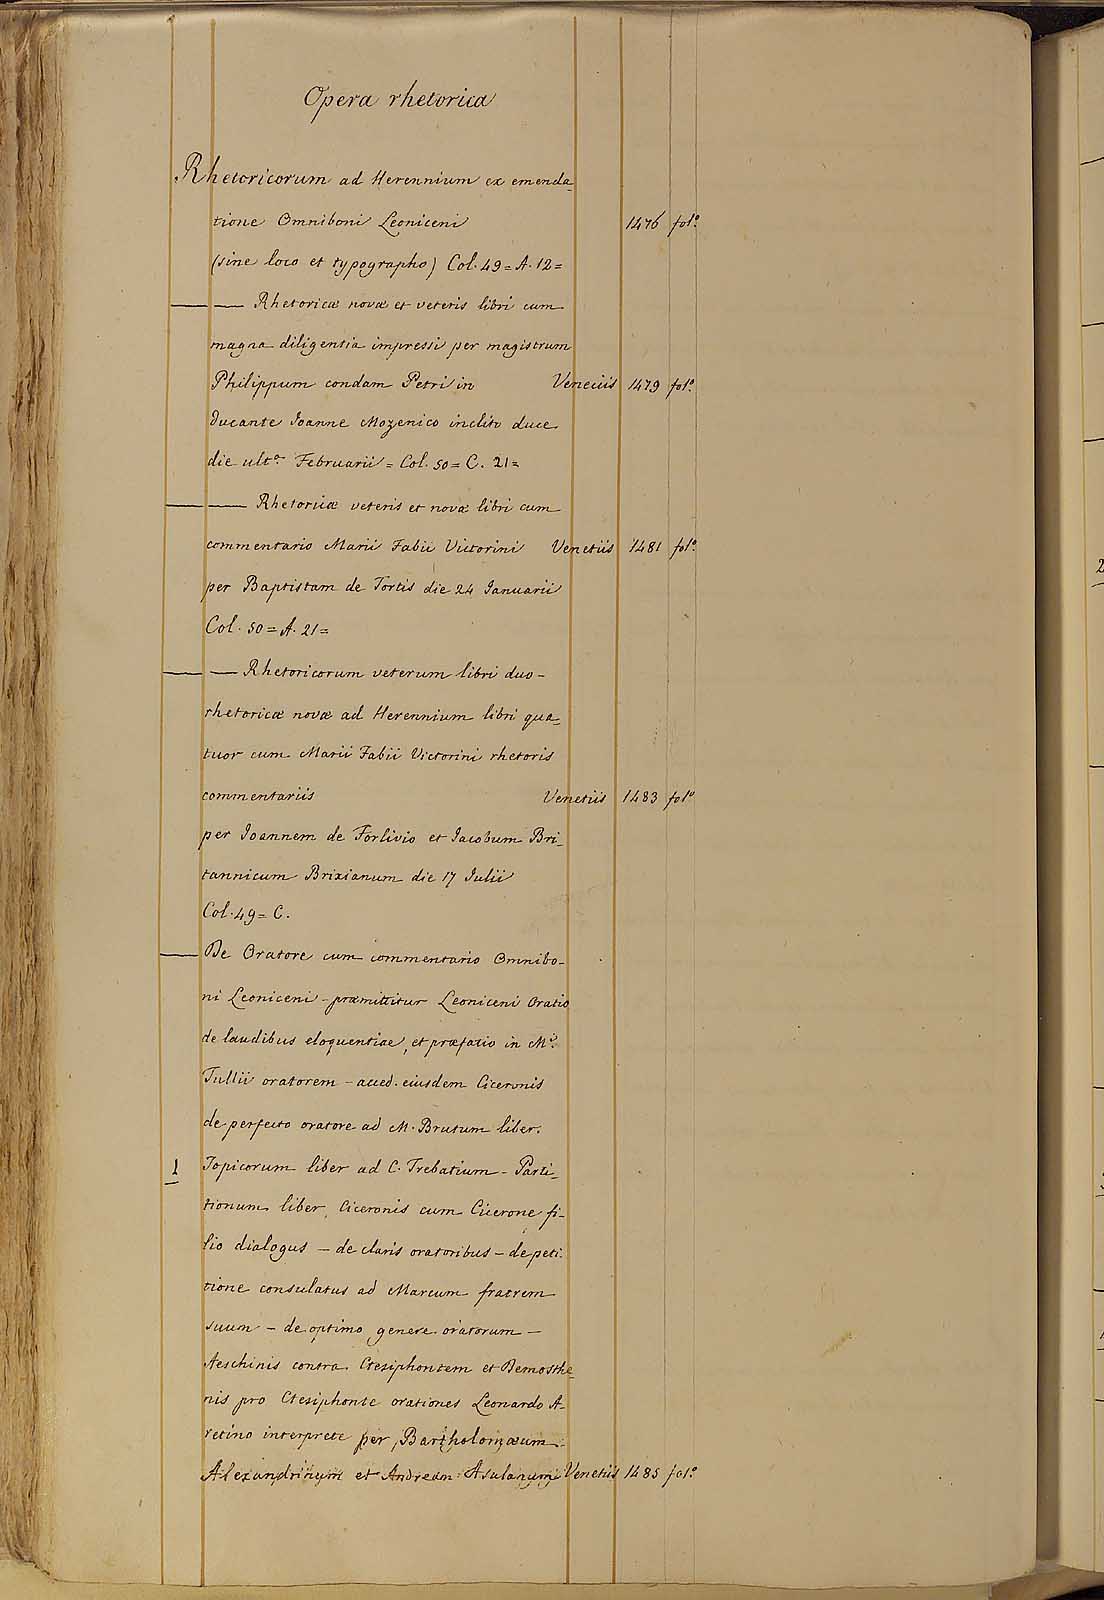 Opera rhetorica
Rhetoricorum ad Herennium ex emenda=
tione Omniboni Leoniceni 1476 fol.°
(sine loco et typographo) Col. 49 = A. 12 =
—— Rhetoricæ novæ et veteris libri cum
magna diligentia impressi per magistrum
Philippum condam Petri in Veneciis 1479 fol.°
ducante Joanne Mozenico inclito duce
die ult.° Februarii = Col. 50 = C. 21 =
—— Rhetoricæ veteris et novæ libri cum
commentario Marii Fabii Victorini Venetiis 1481 fol.°
per Baptistam de Tortis die 24 Januarii
Col. 50 = A. 21 =
—— Rhetoricorum veterum libri duo –
rhetoricæ novæ ad Herennium libri qua=
tuor cum Marii Fabii Victorini rhetoris
commentariis Venetiis 1483 fol.°
per Joannem de Forlivio et Jacobum Bri=
tannicum Brixianum die 17 Julii
Col. 49 = C.
— De Oratore cum commentario Omnibo–
ni Leoniceni – præmittitur Leoniceni Oratio
de laudibus eloquentiae, et præfatio in M.i
Tullii oratorem – acced. eiusdem Ciceronis
de perfecto oratore ad M. Brutum liber.
1 Topicorum liber ad C. Trebatium – Parti=
tionum liber, Ciceronis cum Cicerone fi–
lio dialogus – de claris oratoribus – de peti.
tione consulatus ad Marcum fratrem
suum – de optimo genere oratorum –
Aeschinis contra Ctesiphontem et Demosthe=
nis pro Ctesiphonte orationes Leonardo A–
retino interprete per Bartholomæum
Alexandrinum et Andream Asulanum Venetiis 1485 fol.°